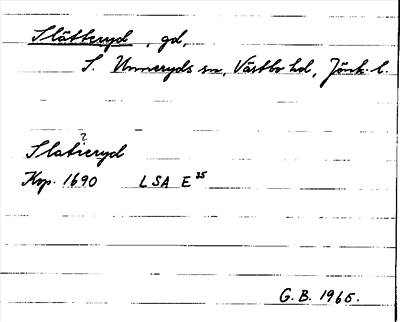 Slätteryd, gd,
S. Unneryds sn, Västbo hd, Jönk. l.
?
Slatieryd
Kop. 1690 LSA E 25
G.B. 1965.